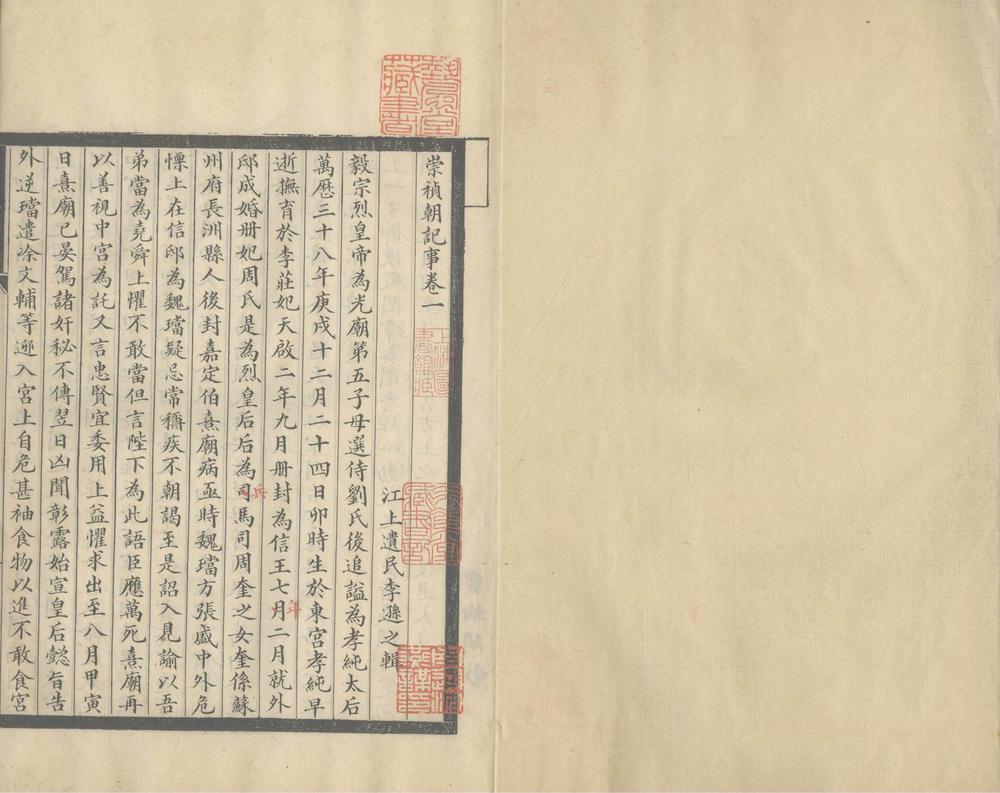 崇禎朝記事卷一
江上遺民李遜之輯
毅宗烈皇帝為光廟第五子母選侍劉氏後追謚為孝純太后
萬歷三十八年庚戌十二月二十四日卯時生於東宮孝純早
逝撫育於李莊妃天啟二年九月册封為信王七月二月就外
年
邸成婚册妃周氏是為烈皇后后為司馬司周奎之女奎係蘇
兵
州府長洲縣人後封嘉定伯熹廟病亟時魏璫方張盛中外危
慄上在信邸為魏璫疑忌常稱疾不朝謁至是詔入見諭以吾
弟當為堯舜上懼不敢當但言陛下為此語臣應萬死熹廟再
以善視中宮為託又言忠賢宜委用上益懼求出至八月甲寅
日熹廟已晏駕諸奸秘不傳翌日凶聞彰露始宣皇后懿旨告
外逆璫遣涂文輔等迎入宮上自危甚袖食物以進不敢食宮
藏書